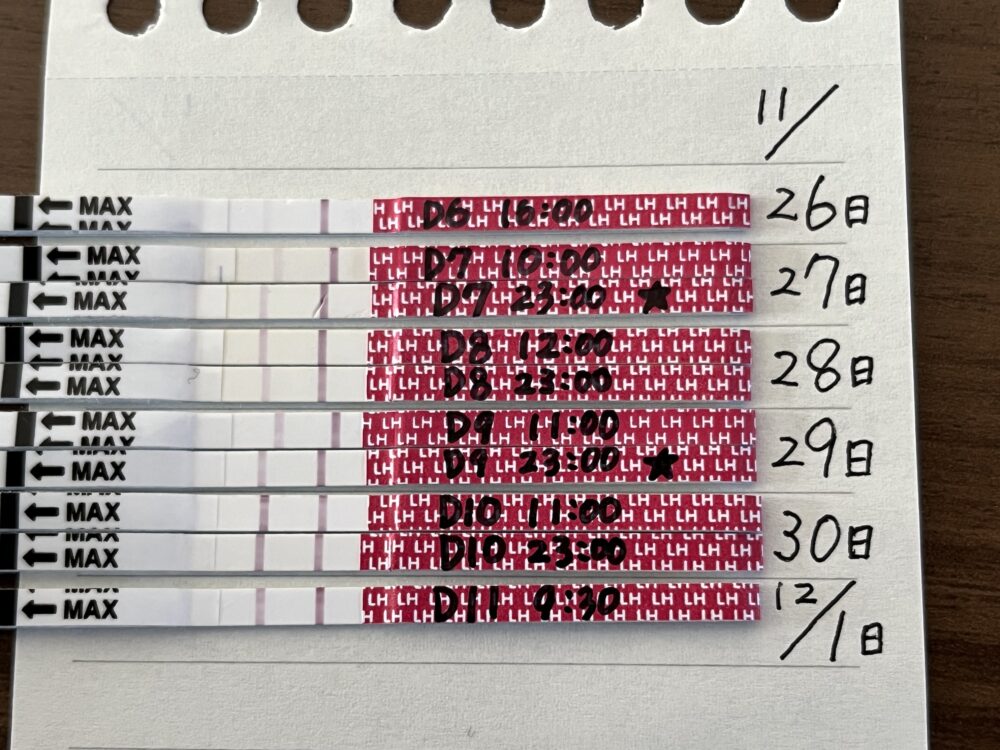 11/
← MAX D6 16:00 26日
← MAX D7 10:00
← MAX D7 23:00 ★ 27日
← MAX D8 12:00
← MAX D8 23:00 28日
← MAX D9 11:00
← MAX D9 23:00 ★ 29日
← MAX D10 11:00
← MAX D10 23:00 30日
← MAX D11 9:30 12/1日
LH LH LH LH